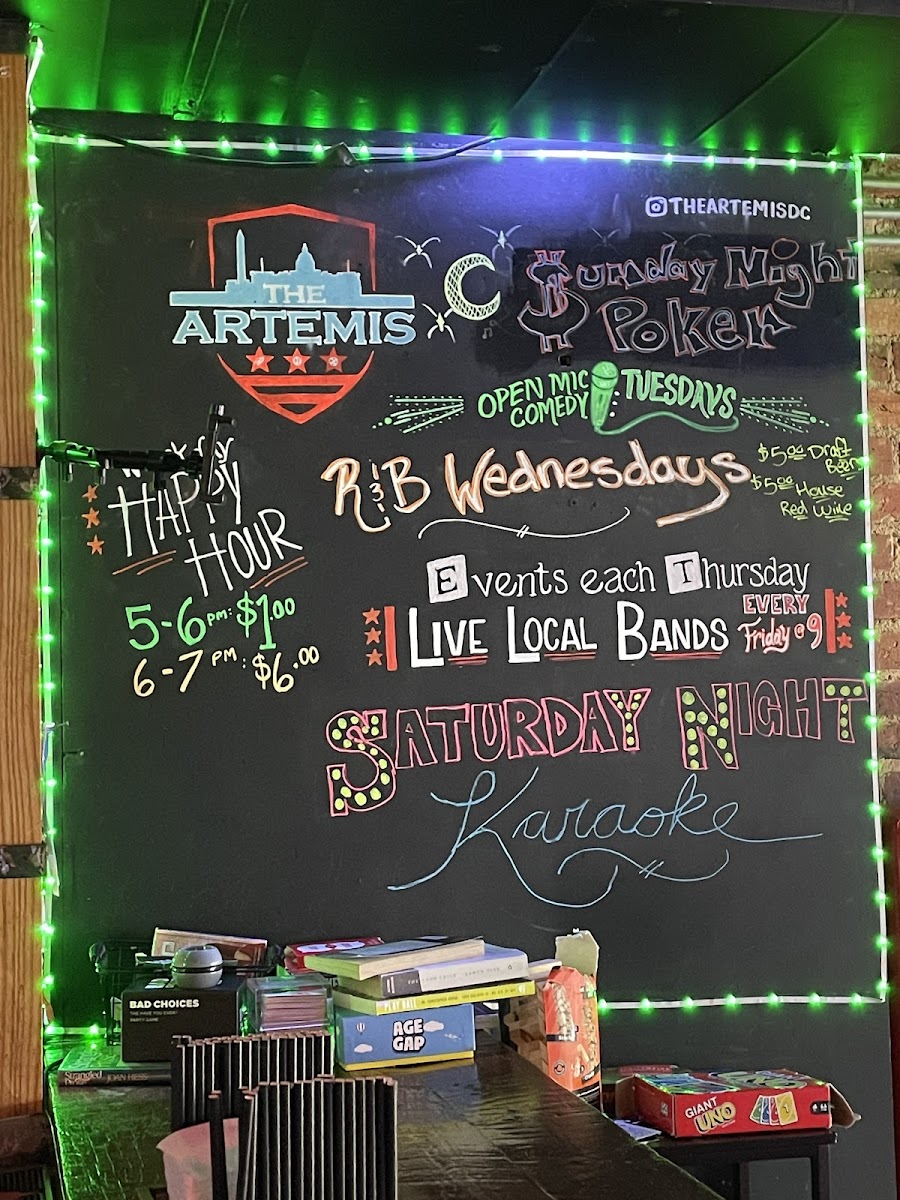 THEARTEMISDC
THE
ARTEMIS
$unday Night
Poker
OPEN MIC
COMEDY
TUESDAYS
R&B Wednesdays
$5.00 Draft
Beer
$5.00 House
Red Wine
HAPPY
HOUR
5-6 pm: $1.00
6-7 PM: $6.00
Events each Thursday
LIVE LOCAL BANDS
EVERY
Friday @ 9
SATURDAY NIGHT
Karaoke
BAD CHOICES
THE HAVE YOU EVER?
PARTY GAME
PLAY BALL
AGE
GAP
Strangled
JOAN HESS
GIANT
UNO